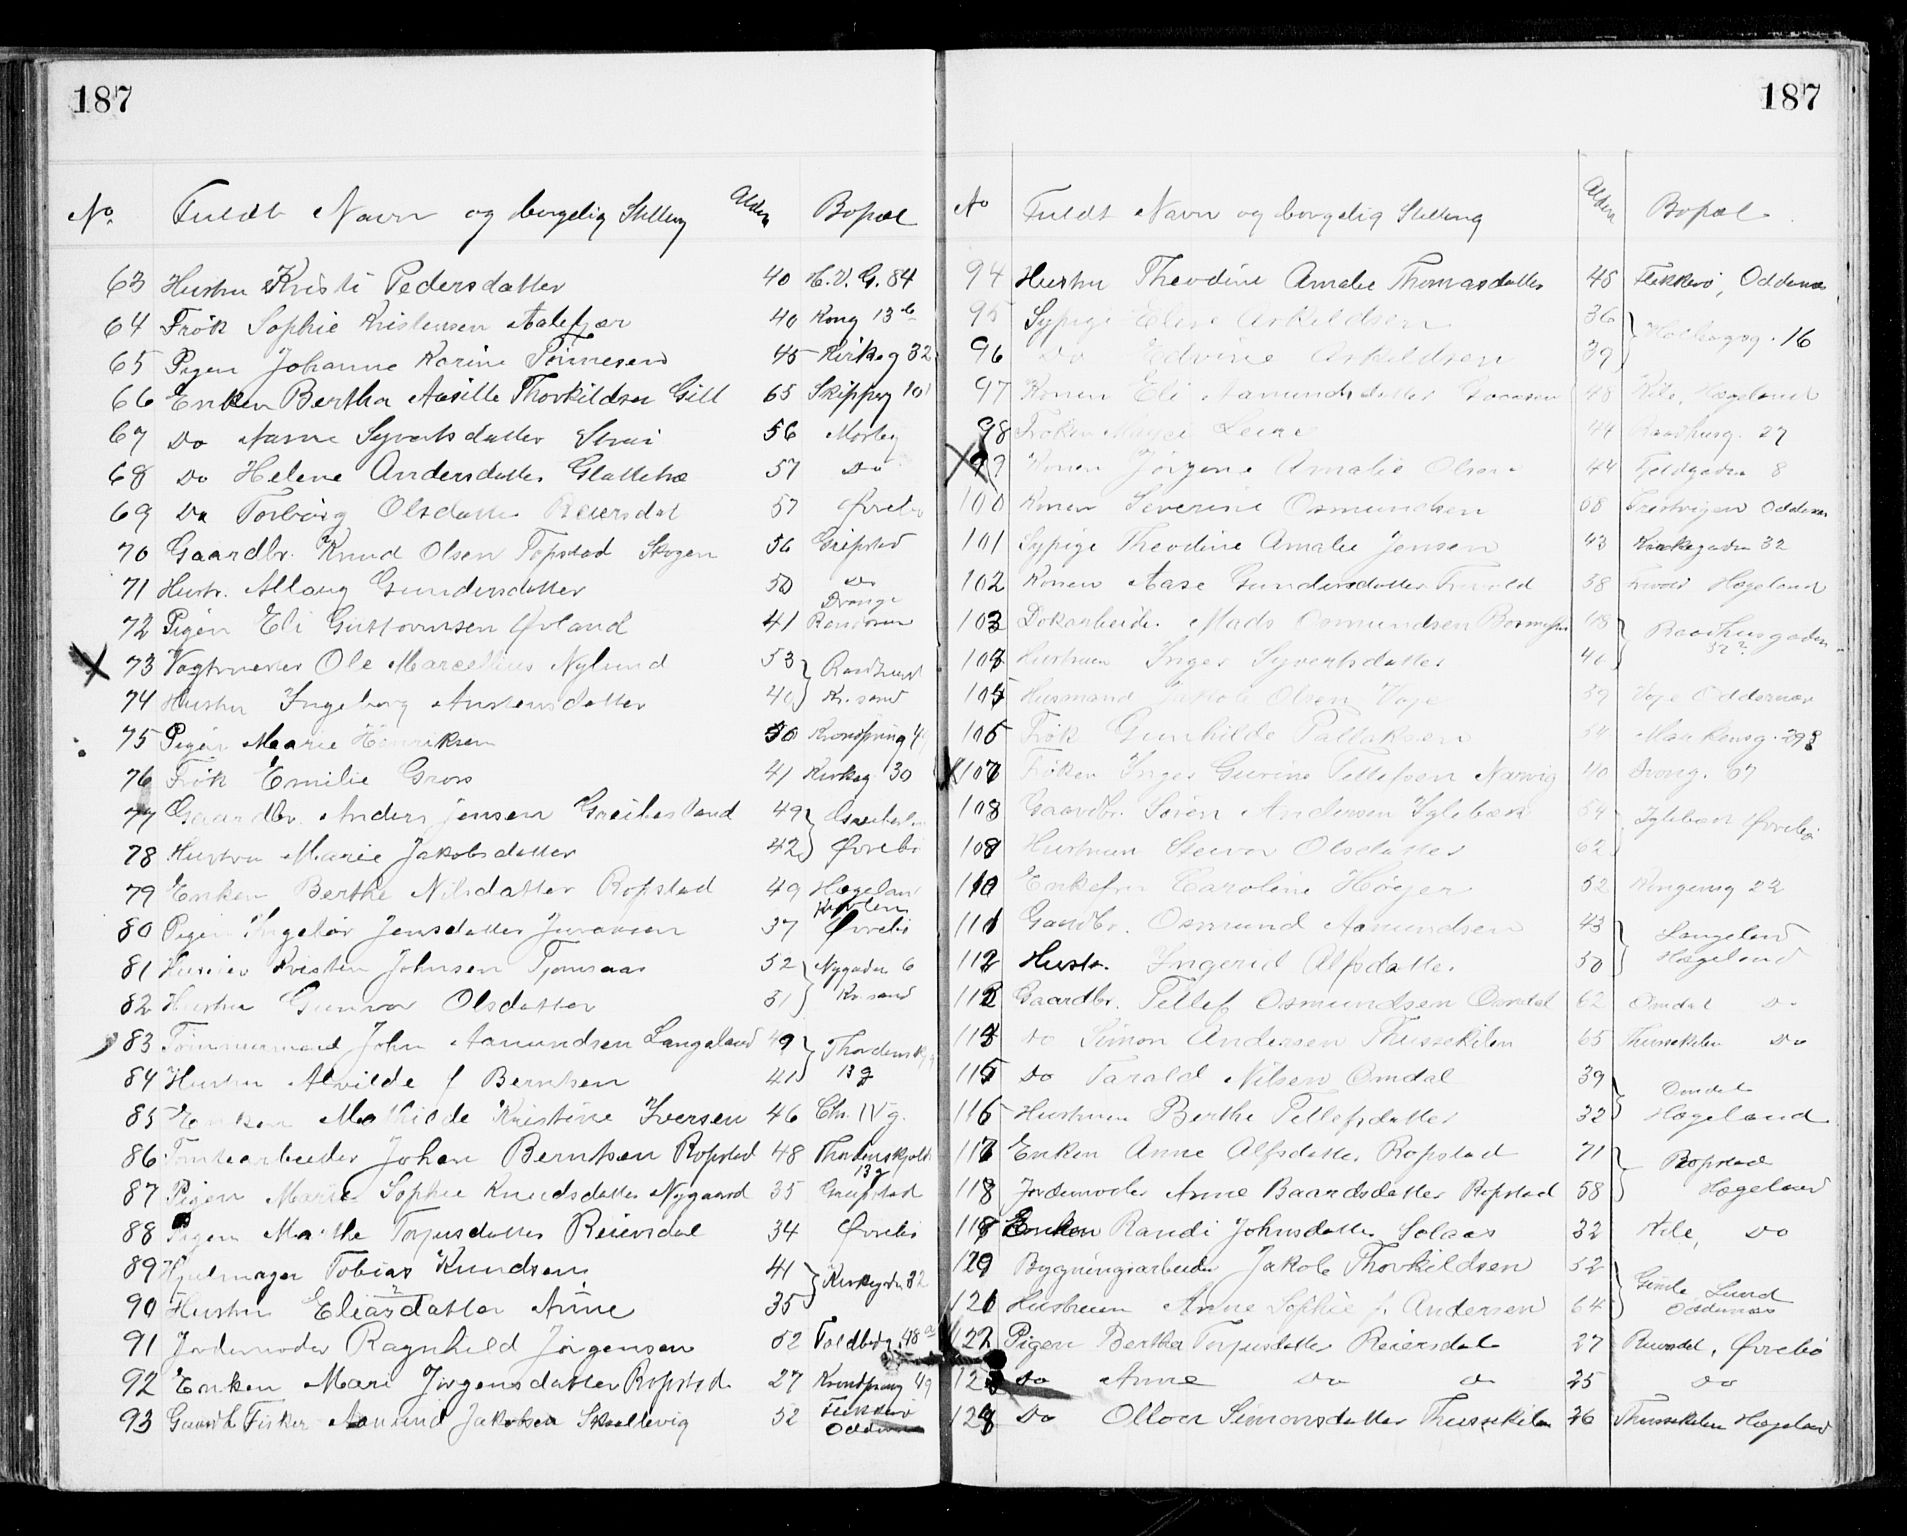 187
No. Fuldt Navn og borgelig Stilling Alder Bopæl
63 Hustru Kristi Pedersdatter 40 H.V.G. 84
64 Frøk Sophie Kristensen Aalefjær 40 Kong 13 b
65 Pigen Johanne Karine Tönnesen 45 Kirkeg 32
66 Enken Bertha Aasille Thorkildsen Gill 65 Skipperg 101
67 Do Aasne Syvertsdatter Strai 56 Mosby
68 Do Helene Andersdatter Glattetræ 57 Do
69 Do Torborg Olsdatter Reiersdal 57 Øvrebø
70 Gaardbr. Knud Olsen Topstad Skogen 56 Greipstad
71 Hustr. Allaug Gundersdatter 50 Do
72 Pigen Eli Gustavnsen Øvland 41 Drange Randøsun
73 Vagtmester Ole Marcellius Nylund 53 Raadhusg
74 Hustru Ingeborg Austensdatter 40 Kr.sand
75 Pigen Marie Henriksen 50 Kronspring 4
76 Frøk Emilie Gross 41 Kirkeg 30
77 Gaardbr. Anders Jensen Greibesland 49
78 Hustru Marie Jakobsdatter 42 Øvrebø
79 Enken Berthe Nilsdatter Ropstad 49 Hægeland
80 Pigen Ingebor Jensdatter 37 Øvrebø
81 Kristen Johnsen Tjomsaas 52 Nygaden 6
82 Hustru Gunvor Olsdatter 51 Kr.sand
83 Tömmermand John Aamundsen Langeland 49 Thordensk
84 Hustru Alvilde f Berntsen 41 13 g
85 Enken Mathilde Kristine Iversen 46 Chr. IV g.
86 Tomtearbeider Johan Berntsen Ropstad 48 Thordenskjolds 13 g
87 Pigen Marie Sophie Knudsdatter Nygaard 35 Greipstad
88 Pigen Marthe Torjusdatter Reiersdal 34 Øvrebø
89 Hjulmager Tobias Knudsen 41 Kirkegdn 32
90 Hustru Eliasdatter Anne 35
91 Jordemoder Ragnhild Jörgensen 52 Toldbodg. 48 a
92 Enken Mari Jörgensdatter Ropstad 27 Kronspring 49
93 Gaardb Fisker Aanund Jakobsen Skaallevig 52 Flekkerø Oddernes
187
No Fuldt Navn og borgelig Stilling Alder Bopæl
94 Hustru Theodine Amalie Thomasdatter 45 Flekkerø, Oddernes
95 Sypige Elise Askildsen 36 Holbergsg. 16
96 Do Edvine Askildsen 39
97 Konen Eli Aanundsdatter 48 Kile, Hægeland
98 Frøken 44 Raadhusg. 27
99 Konen Jørgine Amalie Olsen 44 Feldgaden 8
100 Konen Severine Osmundsen Oddernes
101 Sypige Theodine Amalie Jensen 43 Kirkegaden 32
102 Konen Aase Gundersdatter Fruvold 58 Hægeland
103 Dokarbeider Mads Osmundsen 48 Raadhusgaden
104 Hustruen Inger Syvertsdatter 40
105 Husmand Jakob Olsen Voje 59 Voje Oddernes
106 Frøk Gunhilde 54 Markensg. 29
107 Frøken Inger Gurine Tellefsen Narvig 40 Drong. 67
108 Gaardbr. Sören Andersen Iglebæk 54 Iglebæk Øvrebø
109 Hustruen Steinvor Olsdatter 62
110 Enkefru Caroline Høyer 52 Kongensg 22
111 Gaardbr. Osmund Aanundsen 43 Langeland
112 Hustr. Ingerid Alfsdatter 50 Hægeland
113 Gaardbr. Tellef Osmundsen Omdal 62 Omdal Do
114 Do Simon Andersen Thussekilen 65 Thussekilen Do
115 Do Tarald Nilsen Omdal 39 Omdal
116 Hustruen Berthe Tellefsdatter 32 Hægeland
117 Enken Anne Alfsdatter Ropstad 71 Ropstad
118 Jordemoder Anne Baardsdatter Ropstad 58 Hægeland
119 Enken Randi Johnsdatter Solaas 32 Kile, Do
120 Bygningsarbeider Jakob Thorkildsen 52 Lund
121 Hustruen Anne Sophie f. Andersen 64 Oddernes
122 Pigen Bertha Torjusdatter Reiersdal 27 Reiersdal, Øvrebø
123 Do Anne Do Do 25 Do
124 Do Ollou Simonsdatter Thussekilen 26 Thussekilen Hægeland